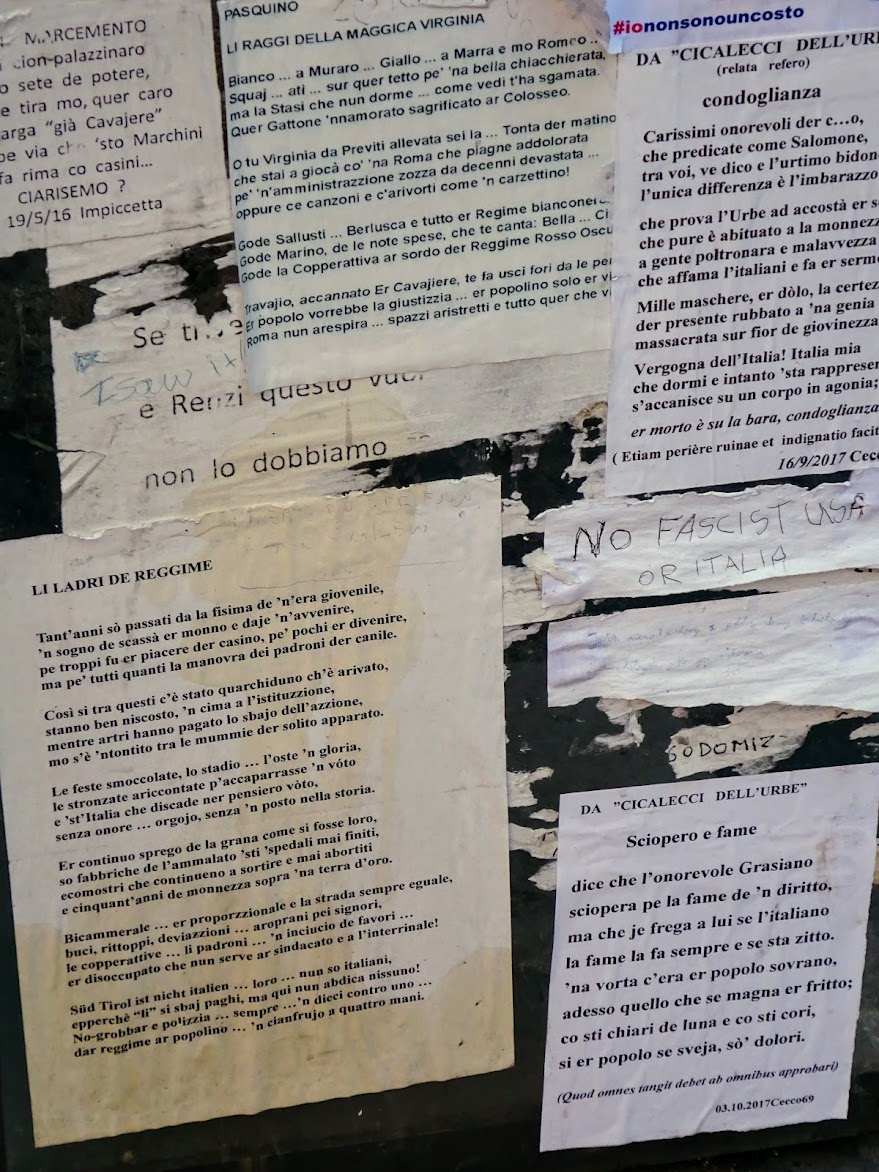 MARCEMENTO
cion-palazzinaro
sete de potere,
e tira mo, quer caro
arga “già Cavajere”
via 'sto Marchini
fa rima co casini...
CIARISEMO ?
19/5/16 Impiccetta
PASQUINO
LI RAGGI DELLA MAGGICA VIRGINIA
Bianco ... a Muraro ... Giallo ... a Marra e mo Romeo ..
Squaj ... ati ... sur quer tetto pe' 'na bella chiacchierata,
ma la Stasi che nun dorme ... come vedi t'ha sgamata.
Quer Gattone 'nnamorato sagrificato ar Colosseo.
O tu Virginia da Previti allevata sei la ... Tonta der matino
che stai a giocà co' 'na Roma che piagne addolorata
pe' 'n'amministrazzione zozza da decenni devastata ...
oppure ce canzoni e c'arivorti come 'n carzettino!
Gode Sallusti ... Berlusca e tutto er Regime bianconer
Gode Marino, de le note spese, che te canta: Bella ... Ci
Gode la Copperattiva ar sordo der Reggime Rosso Oscu
Travajio, accannato Er Cavajere, te fa usci fori da le per
Er popolo vorrebbe la giustizzia ... er popolino solo er vi
Roma nun arespira ... spazzi aristretti e tutto quer che vi
#iononsonouncosto
DA "CICALECCI DELL'URB
(relata refero)
condoglianza
Carissimi onorevoli der c...o,
che predicate come Salomone,
tra voi, ve dico e l'urtimo bidon
l'unica differenza è l'imbarazzo
che prova l'Urbe ad accostà er s
che pure è abituato a la monnezz
a gente poltronara e malavvezza
che affama l'italiani e fa er serm
Mille maschere, er dòlo, la certez
der presente rubbato a 'na genia
massacrata su fior de giovinezza
Vergogna dell'Italia! Italia mia
che dormi e intanto 'sta rappresen
s'accanisce su un corpo in agonia;
er morto è su la bara, condoglianza
( Etiam perière ruinae et indignatio facit
16/9/2017 Cecc
Se ti
I saw it
e Renzi questo
non lo dobbiamo
NO FASCIST USA
OR ITALIA
SODOMIZ
LI LADRI DE REGGIME
Tant'anni sò passati da la fisima de 'n'era giovenile,
'n sogno de scassà er monno e daje 'n'avvenire,
pe troppi fu er piacere der casino, pe' pochi er divenire,
ma pe' tutti quanti la manovra dei padroni der canile.
Così si tra questi c'è stato quarchiduno ch'è arivato,
stanno ben niscosto, 'n cima a l'istituzzione,
mentre artri hanno pagato lo sbajo dell'azzione,
mo s'è 'ntontito tra le mummie der solito apparato.
Le feste smoccolate, lo stadio ... l'oste 'n gloria,
le stronzate ariccontate p'accaparrasse 'n vóto
e 'st'Italia che discade ner pensiero vòto,
senza onore ... orgojo, senza 'n posto nella storia.
Er continuo sprego de la grana come si fosse loro,
so fabbriche de l'ammalato 'sti 'spedali mai finiti,
ecomostri che continueno a sortire e mai abortiti
e cinquant'anni de monnezza sopra 'na terra d'oro.
Bicammerale ... er proporzzionale e la strada sempre eguale,
buci, rittoppi, deviazzioni ... aroprani pei signori,
le copperattive ... li padroni ... 'n inciucio de favori ...
er disoccupato che nun serve ar sindacato e a l'interrinale!
Süd Tirol ist nicht italien ... loro ... nun so italiani,
epperchè “li” si sbaj paghi, ma qui nun abdica nissuno!
No-grobbar e polizzia ... sempre ...'n dieci contro uno ...
dar reggime ar popolino ... 'n cianfrujo a quattro mani.
DA "CICALECCI DELL'URBE"
Sciopero e fame
dice che l'onorevole Grasiano
sciopera pe la fame de 'n diritto,
ma che je frega a lui se l'italiano
la fame la fa sempre e se sta zitto.
'na vorta c'era er popolo sovrano,
adesso quello che se magna er fritto;
co sti chiari de luna e co sti cori,
si er popolo se sveja, sò' dolori.
(Quod omnes tangit debet ab omnibus approbari)
03.10.2017Cecco69